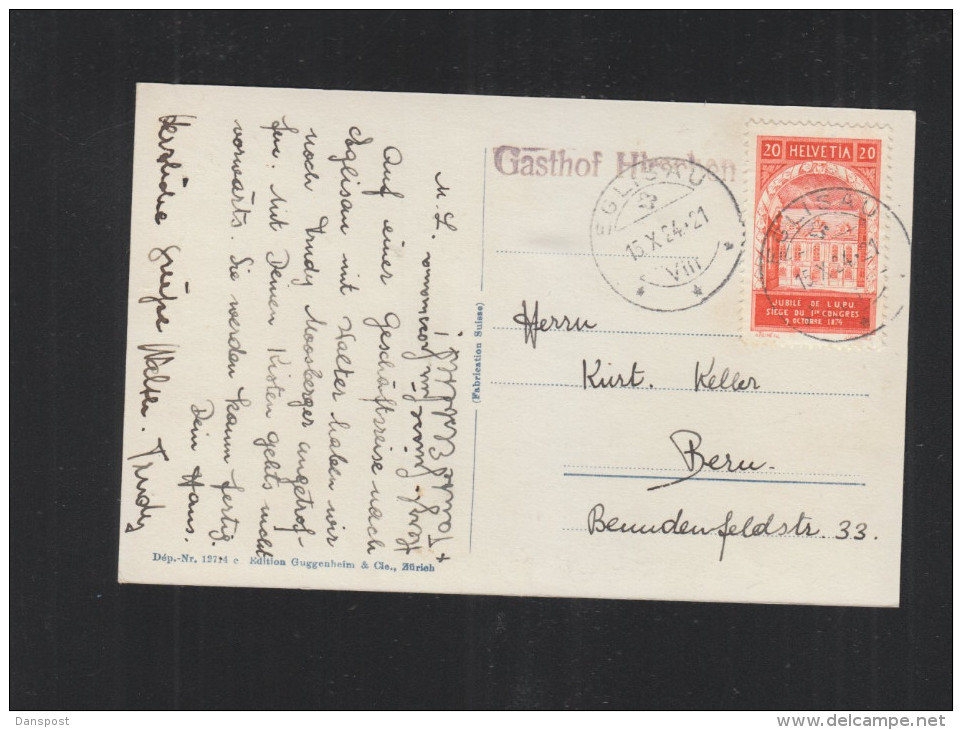 M. L.
Auf einer Geschäftsreise nach
Eglisau mit Walter haben wir
noch Trudy Moosberger angetrof-
fen. Mit Deinen Kisten gehts nicht
vorwärts. Sie werden kaum fertig.
Dein Hans.
Herzliche Grüsse Walter. Trudy
Gasthof Hirschen
EGLISAU
15.X.24.21
VIII
20 HELVETIA 20
JUBILÉ DE L'U.P.U
SIÈGE DU 1er CONGRÈS
9 OCTOBRE 1874
EGLISAU
15.X.24.21
(Fabrication Suisse)
Herrn
Kurt. Keller
Bern.
Beundenfeldstr. 33.
Dép.-Nr. 12714 c Edition Guggenheim & Cie., Zürich
Danspost
www.delcampe.net